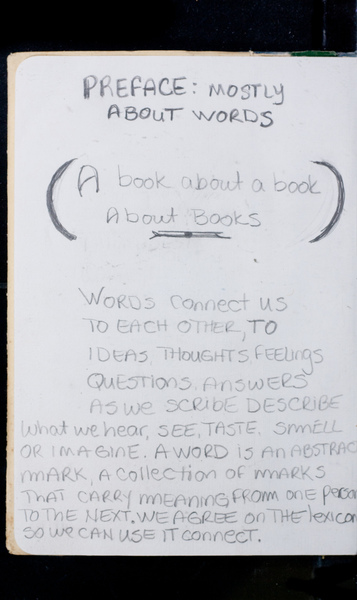 PREFACE: MOSTLY
ABOUT WORDS
(A book about a book
About Books)
WORDS connect us
TO EACH OTHER, TO
IDEAS, THOUGHTS FEELINGS
QUESTIONS. ANSWERS
AS WE SCRIBE DESCRIBE
what we hear, SEE, TASTE, SMELL
OR IMAGINE. A WORD IS AN ABSTRAC
MARK, A collection OF MARKS
THAT CARRY MEANING FROM one person
TO THE NEXT. WE AGREE on THE lexicon
SO WE CAN USE IT connect.